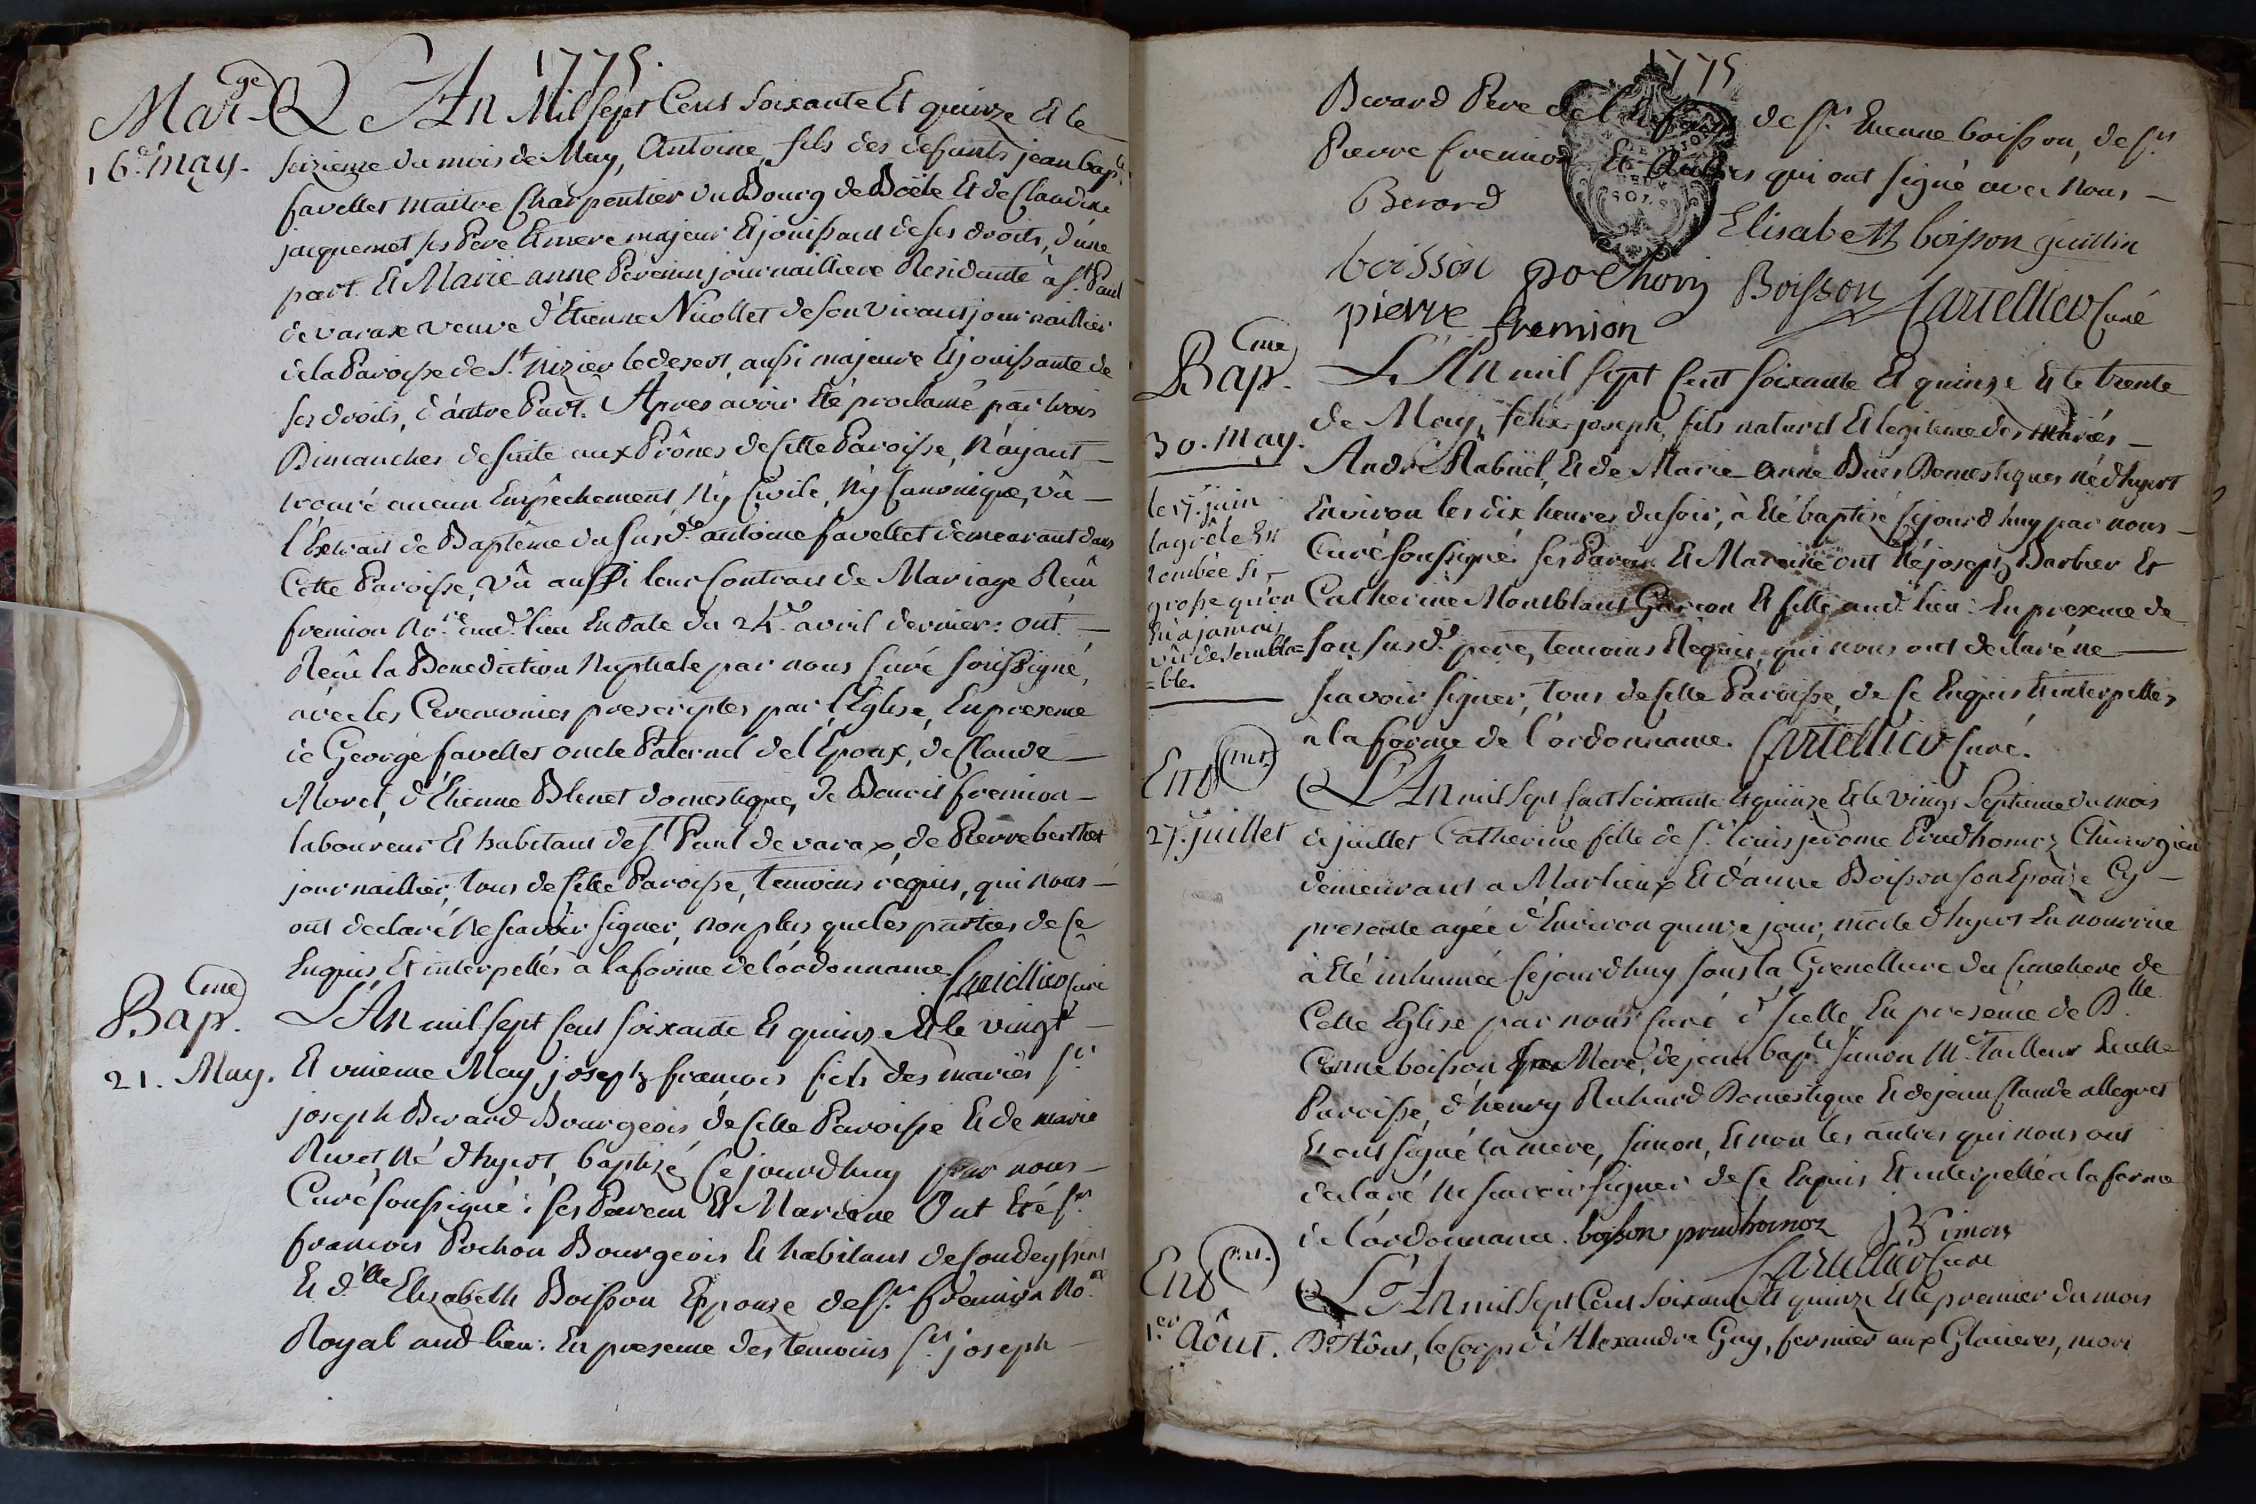 1775.
Mar.ge L'An Mil sept Cent soixante Et quinze Et le
16.e may. seizieme du mois de May, Antoine, fils des defunts jean bap.te
favellet maitre Charpentier du Bourg de Et de Claudine
jacquemet ses Pere Et mere majeur Et jouissant de ses droits, d'une
part. Et Marie anne journailliere Residante à S.t Paul
de varax veuve d'Etienne Nicollet de son vivant journaillier
de la Paroisse de S.t nizier le desert, aussi majeure Et jouissante de
ses droits, d'autre Part. Apres avoir Eté proclamé par trois
Dimanches de suite aux Prônes de Cette Paroisse, N'ayant
trouvé aucun Empêchement Ny Civile, Ny Canonique, vû
l'Extrait de Baptême du susd.t antoine favellet demeurant dans
Cette Paroisse, vû aussi leur Contrat de Mariage Reçû
fremion No.re aud.t lieu En date du 24.e avril dernier: ont
Reçû la Benediction Nuptiale par nous Curé soussigné,
avec les Ceremonies prescriptes par l'Eglise, En presence
de George favellet oncle Paternel de l'Epoux, de Claude
Morel, d'Etienne Blenet domestique, de Benoit fremion
laboureur Et habitant de S.t Paul de varax, de Pierre berthet
journaillier, tous de Cette Paroisse, temoins requis, qui nous
ont declaré Ne scavoir signer, non plus que les parties de Ce
Enquis, Et interpellés à la forme de l'ordonnance. Cartellier Curé
Bap.me L'An mil sept Cent soixante Et quinze Et le vingt
21. May. Et unieme May, joseph françois fils des mariés s.r
joseph Berard Bourgeois de Cette Paroisse Et de marie
Rivet, Né d'hyert, baptizé Cejourd'huy par nous
Curé soussigné: ses Parein Et Mareine Ont Eté s.r
françois Pochon Bourgeois Et habitant de
Et d.lle Elisabeth Boisson Epouze de s.r fremion No.re
Royal aud. lieu: En presence des temoins s.r joseph
1775
Berard Pere de l'Enfant de s.r Etienne boisson, de s.r
Pierre fremion Et Autres qui ont signé avec Nous
Berard Elisabett boisson guillin
boisson pochon Boisson Cartellier Curé
pierre fremion
Bap.me L'An mil sept Cent soixante Et quinze Et le trente
30. May. de May, felix joseph, fils naturel Et legitime des mariés
André Rabuel, Et de Marie Anne Domestiques né d'hyert
Environ les dix heures du soir, à Eté baptisé Cejourd'huy par nous
Curé soussigné ses Parein Et Mareine ont Eté joseph Barbier Et
Catherine Montblant Garcon Et fille aud.t lieu: En presence de
son susd.t pere, temoins Requis, qui nous ont declaré ne
scavoir signer, tous de Cette Paroisse, de Ce Enquis Et interpellés
à la forme de l'ordonnance. Cartellier Curé.
le 17. juin
la grêle Est
tombée si
grosse qu'on
En a jamais
vû de sembla=
=ble.
Ent.mt L'An mil sept Cent soixante Et quinze Et le vingt Septieme du mois
27. juillet de juillet Catherine fille de s.r louis jerome Prudhomoz Chirurgien
demeurant a Marlieux Et d'anne Boisson son Epouze Cy
presente agée d'Environ quinze jour, morte d'hyert En nourrice
à Eté inhumée Cejourd'huy sous la Grenettiere du Cimetiere de
Cette Eglise par nous Curé d'Icelle En presence de D.lle
Anne boisson sa Mere, de jean bap.te Simon M.e Tailleur
Paroisse, d'henry Richard Domestique Et de jean Claude allegret
Et ont signé la mere, Simon, Et non les autres qui nous ont
declaré Ne scavoir signer de Ce Enquis Et interpellés a la forme
de l'ordonnance. boisson prudhomoz JB simon
Cartellier Curé
Ent.mt L'An mil sept Cent soixante Et quinze Et le premier du mois
1.er Aôut. D'Aôut, le Corps d'Alexandre Guy, fermier aux Glacieres, mort